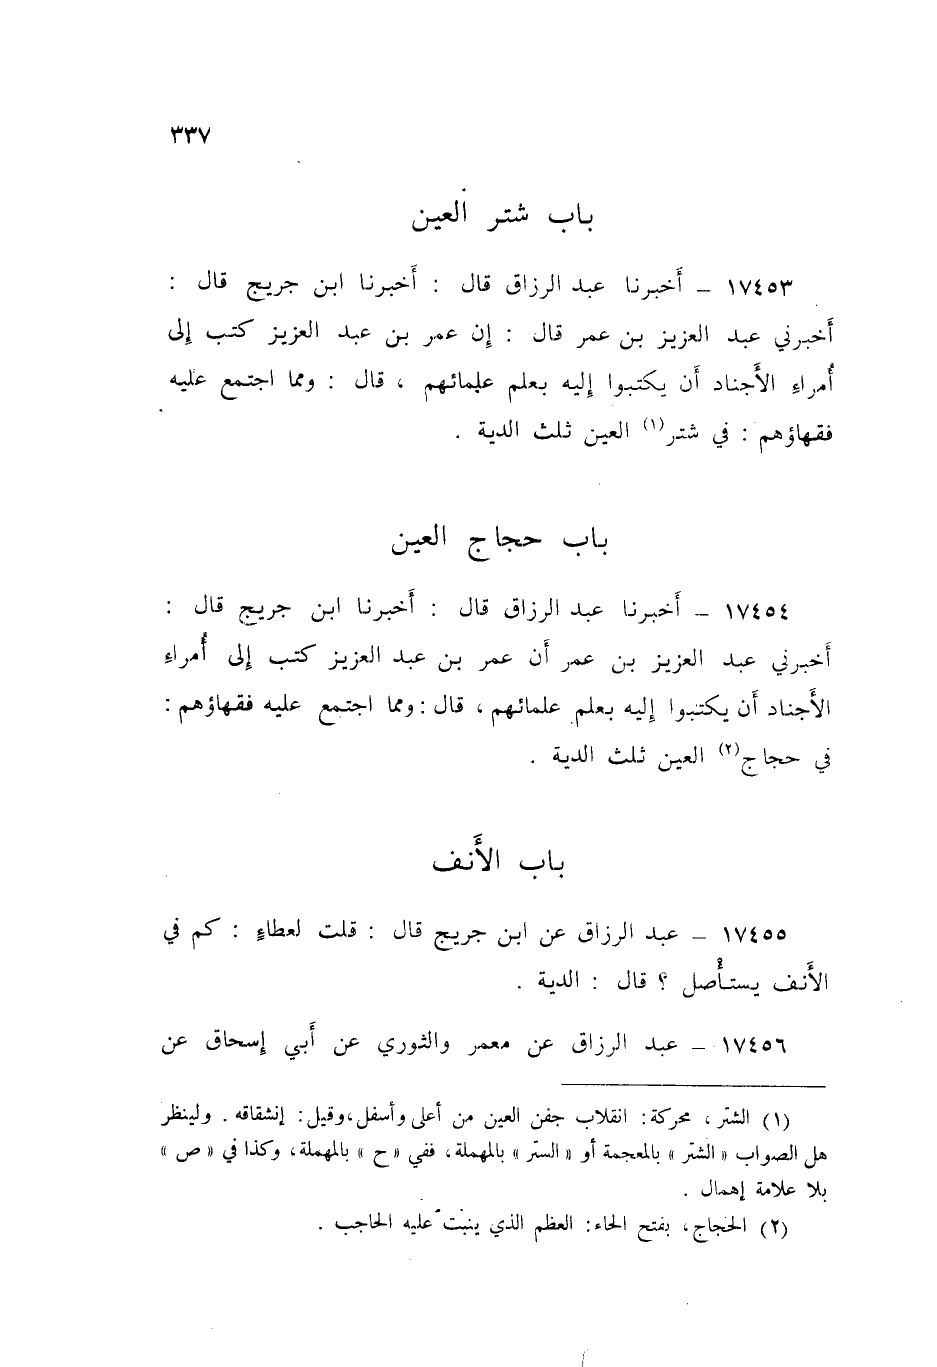 ٣٣٧
باب شتر العين
١٧٤٥٣ – أَخبرنا عبد الرزاق قال : أَخبرنا ابن جريج قال :
أَخبرني عبد العزيز بن عمر قال : إن عمر بن عبد العزيز كتب إلى
أُمراءِ الأَجناد أَن يكتبوا إليه بعلم علمائهم ، قال : ومما اجتمع عليه
فقهاؤهم : في شتر(١) العين ثلث الدية .
باب حجاج العين
١٧٤٥٤ – أَخبرنا عبد الرزاق قال : أَخبرنا ابن جريج قال :
أَخبرني عبد العزيز بن عمر أَن عمر بن عبد العزيز كتب إلى أُمراءِ
الأَجناد أَن يكتبوا إليه بعلم علمائهم ، قال : ومما اجتمع عليه فقهاؤهم :
في حجاج(٢) العين ثلث الدية .
باب الأَنف
١٧٤٥٥ – عبد الرزاق عن ابن جريج قال : قلت لعطاءٍ : كم في
الأَنف يستأْصل ؟ قال : الدية .
١٧٤٥٦ – عبد الرزاق عن معمر والثوري عن أَبي إسحاق عن
(١) الشتر ، محركة : انقلاب جفن العين من أعلى وأسفل ، وقيل : إنشقاقه . ولينظر
هل الصواب « الشتر » بالمعجمة أو « الستر » بالمهملة ، ففي « ح » بالمهملة ، وكذا في « ص »
بلا علامة إهمال .
(٢) الحجاج ، بفتح الحاء : العظم الذي ينبت عليه الحاجب .